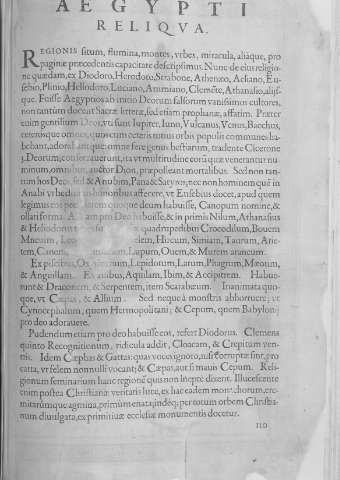 AEGYPTI
RELIQVA.
REGIONIS situm, flumina, montes, vrbes, miracula, aliàque, pro
paginæ præcedentis capacitate descripsimus. Nunc de eius religio-
ne quædam, ex Diodoro, Herodoto, Strabone, Athenæo, Aeliano, Eu-
sebio, Plinio, Heliodoro, Luciano, Ammiano, Clemēte, Athanasio, alijs-
que. Fuisse Aegyptios ab initio Deorum falsorum vanissimos cultores,
non tantùm docent Sacræ litteræ, sed etiam prophanæ, affatim. Præter
enim gentilium Deos, vt sunt Iupiter, Iuno, Vulcanus, Venus, Bacchus,
ceterosque omnes, quos cum ceteris totius orbis populis communes ha-
bebant, adorabantque; omne fere genus bestiarum, tradente Cicerone
3. Deorum, consecrauerunt, ita vt multitudine eorū quæ venerantur nu-
minum, omnibus, auctor Dion, præpolleant mortalibus. Sed non tan-
tùm hos Deos, sed & Anubim, Pana & Satyros; nec non hominem quē in
Anabi vrbe diuinis honoribus afficere, vt Eusebius docet, apud quem
legimus eos præterea quoque deum habuisse, Canopum nomine, &
ollari forma. pro Deo habuisse, & in primis Nilum, Athanasius
& Heliodorus quadrupedibus Crocodilum, Bouem
Mneuim, Hircum, Simiam, Taurum, Arie-
tem, Canem, Lupum, Ouem, & Murem araneum.
Ex piscibus, Lepidotum, Latum, Phagrum, Mæotim,
& Anguillam. Ex auibus, Aquilam, Ibim, & Accipitrem. Habue-
runt & Draconem, & Serpentem, item Scarabeum. Inanimata quo-
que, vt Cæpas, & Allium. Sed neque à monstris abhorruere, vt
Cynocephalum, quem Hermopolitani; & Cepum, quem Babylonij
pro deo adorauere.
Pudendum etiam pro deo habuisse eos, refert Diodorus. Clemens
quinto Recognitionum, ridicula addit, Cloacam, & Crepitum ven-
tris. Idem Cæphas & Gattas: quas voces ignoto, nisi corruptæ sint, pro
catta, vt felem nonnulli vocant; & Cæpas, aut si mauis Cepum. Reli-
gionum seminarium hanc regionē quis non ineptè dixerit. Illucescente
enim postea Christianæ veritatis luce, ex hac eadem monachorum, ere-
mitarúmque agmina, primùm enata, indéq; per totum orbem Christia-
num diuulgata, ex primitiuæ ecclesiæ monumentis docetur.
110